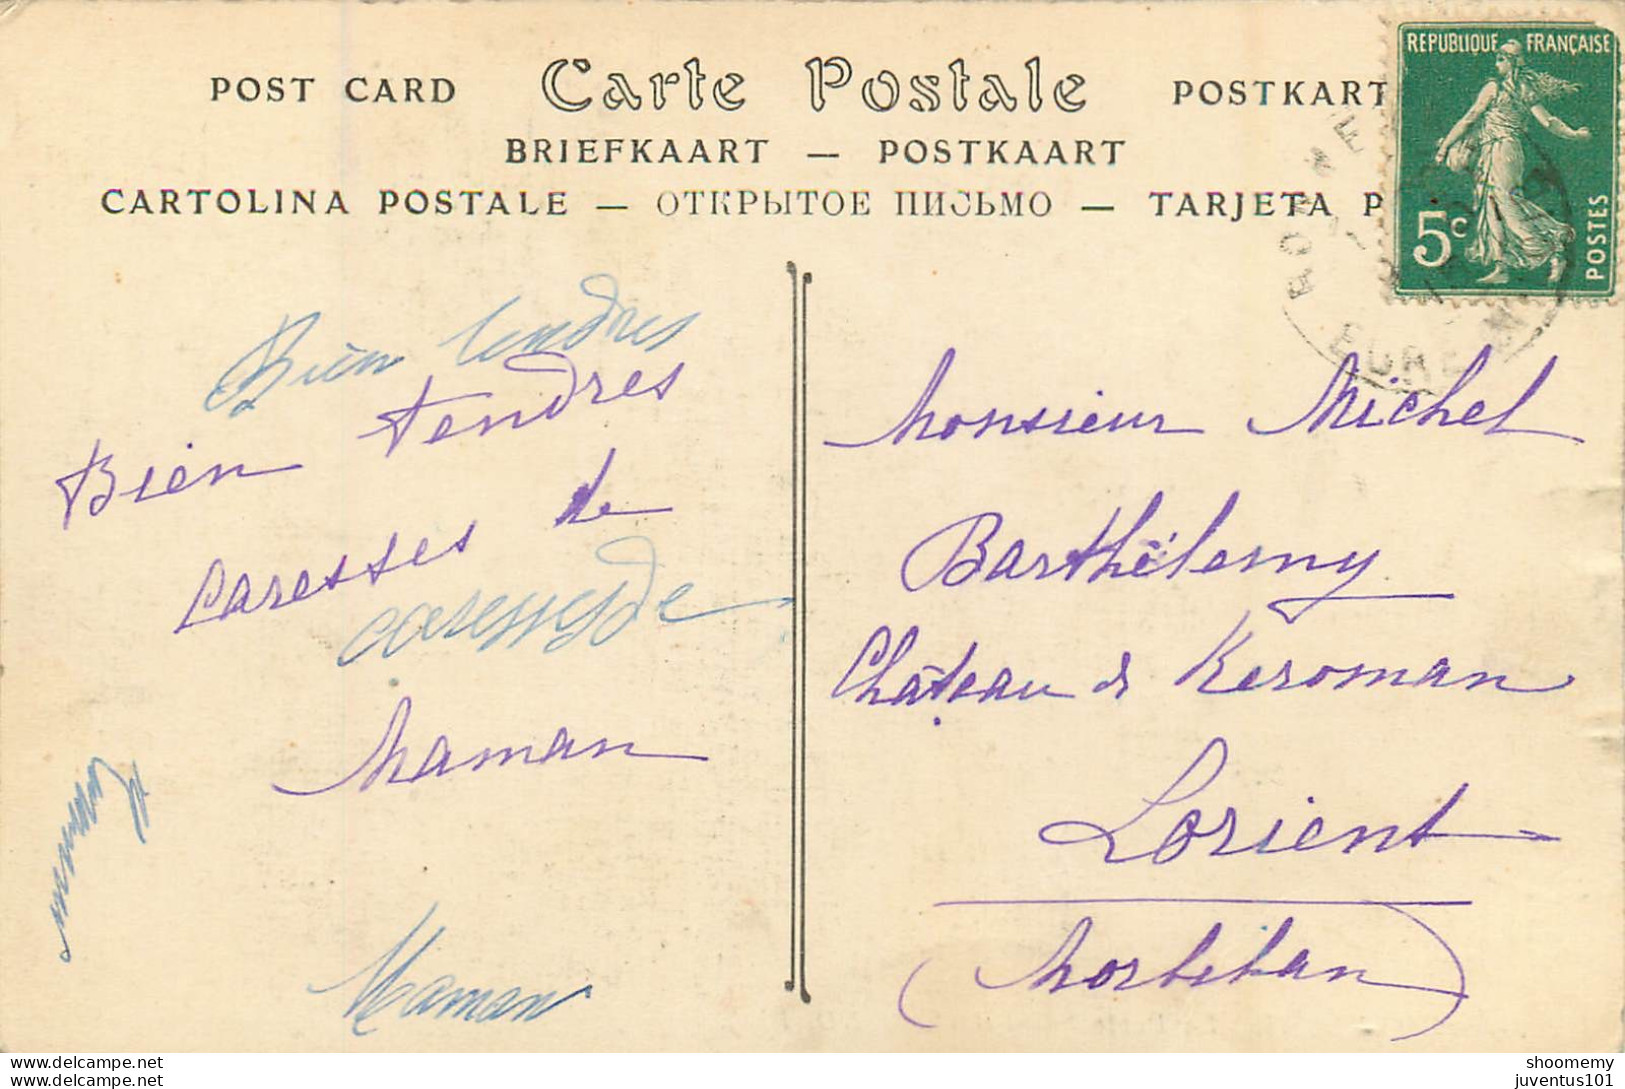 POST CARD Carte Postale POSTKART
BRIEFKAART — POSTKAART
CARTOLINA POSTALE — ОТКРЫТОЕ ПИСЬМО — TARJETA P
REPUBLIQUE FRANÇAISE
5c
POSTES
EURE
Bien tendres
Bien tendres
Caresses de
caresses de
Maman
Maman
Monsieur Michel
Barthélemy
Château de Keroman
Lorient
(Morbihan)
shoomemy
juventus101